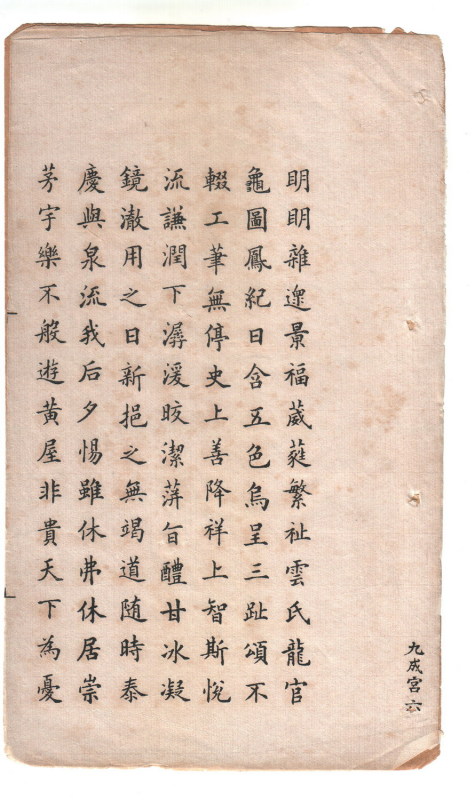 明明雜遝景福葳蕤繁祉雲氏龍官
龜圖鳳紀日含五色烏呈三趾頌不
輟工筆無停史上善降祥上智斯悅
流謙潤下潺湲晈潔蓱旨醴甘冰凝
鏡澈用之日新挹之無竭道随時泰
慶與泉流我后夕惕雖休弗休居崇
茅宇樂不般遊黄屋非貴天下為憂
九成宮 六